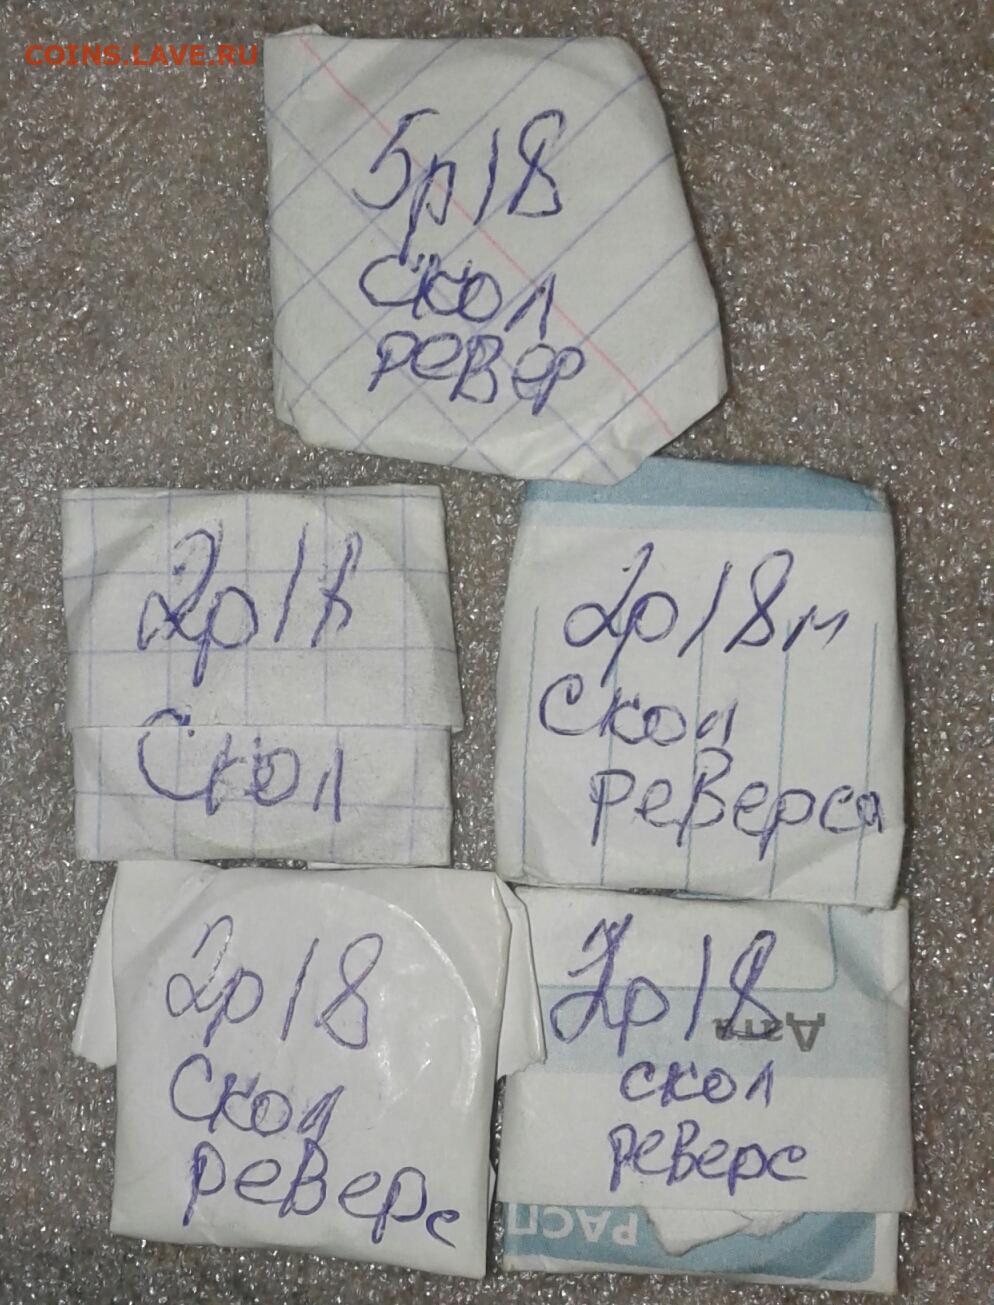 COINS.LAVE.RU
5р18
скол
ревер
Скол
2р18м
Скол
реверса
2р18
Скол
реверс
2р18
скол
реверс
Дата
РАСП